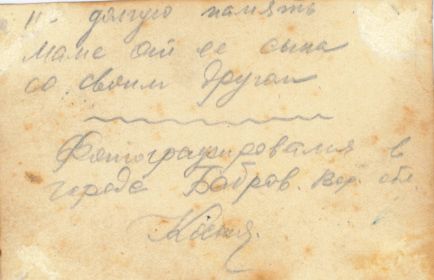 На долгую память
маме от ее сына
со своим другом
Фотографировался в
городе Бобров. Вор. обл.
Костя.